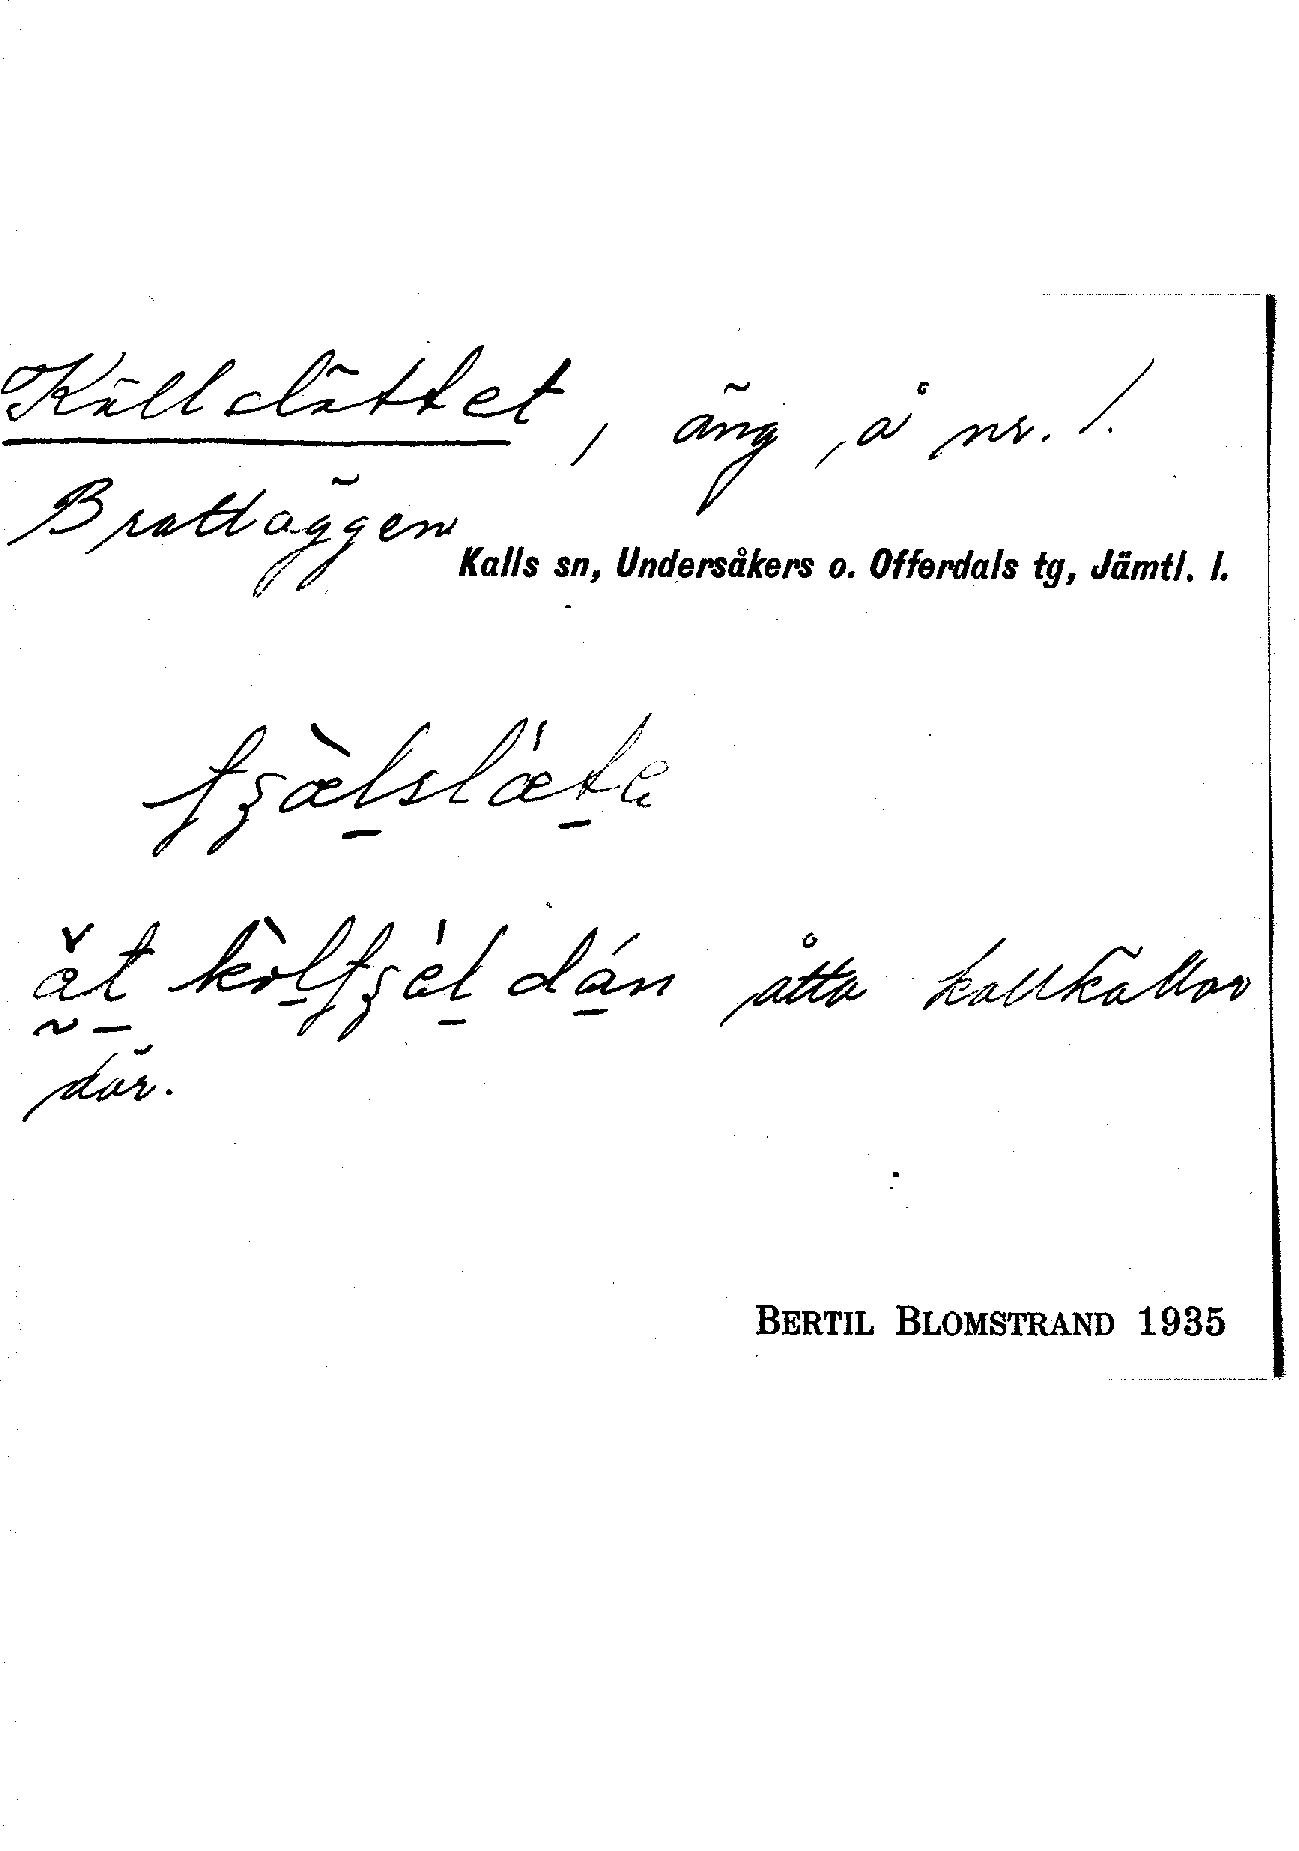 Källslättet, äng å nr. 1.
Brattäggen
Kalls sn, Undersåkers o. Offerdals tg, Jämtl. l.
åtta kallkällor
där.
BERTIL BLOMSTRAND 1935